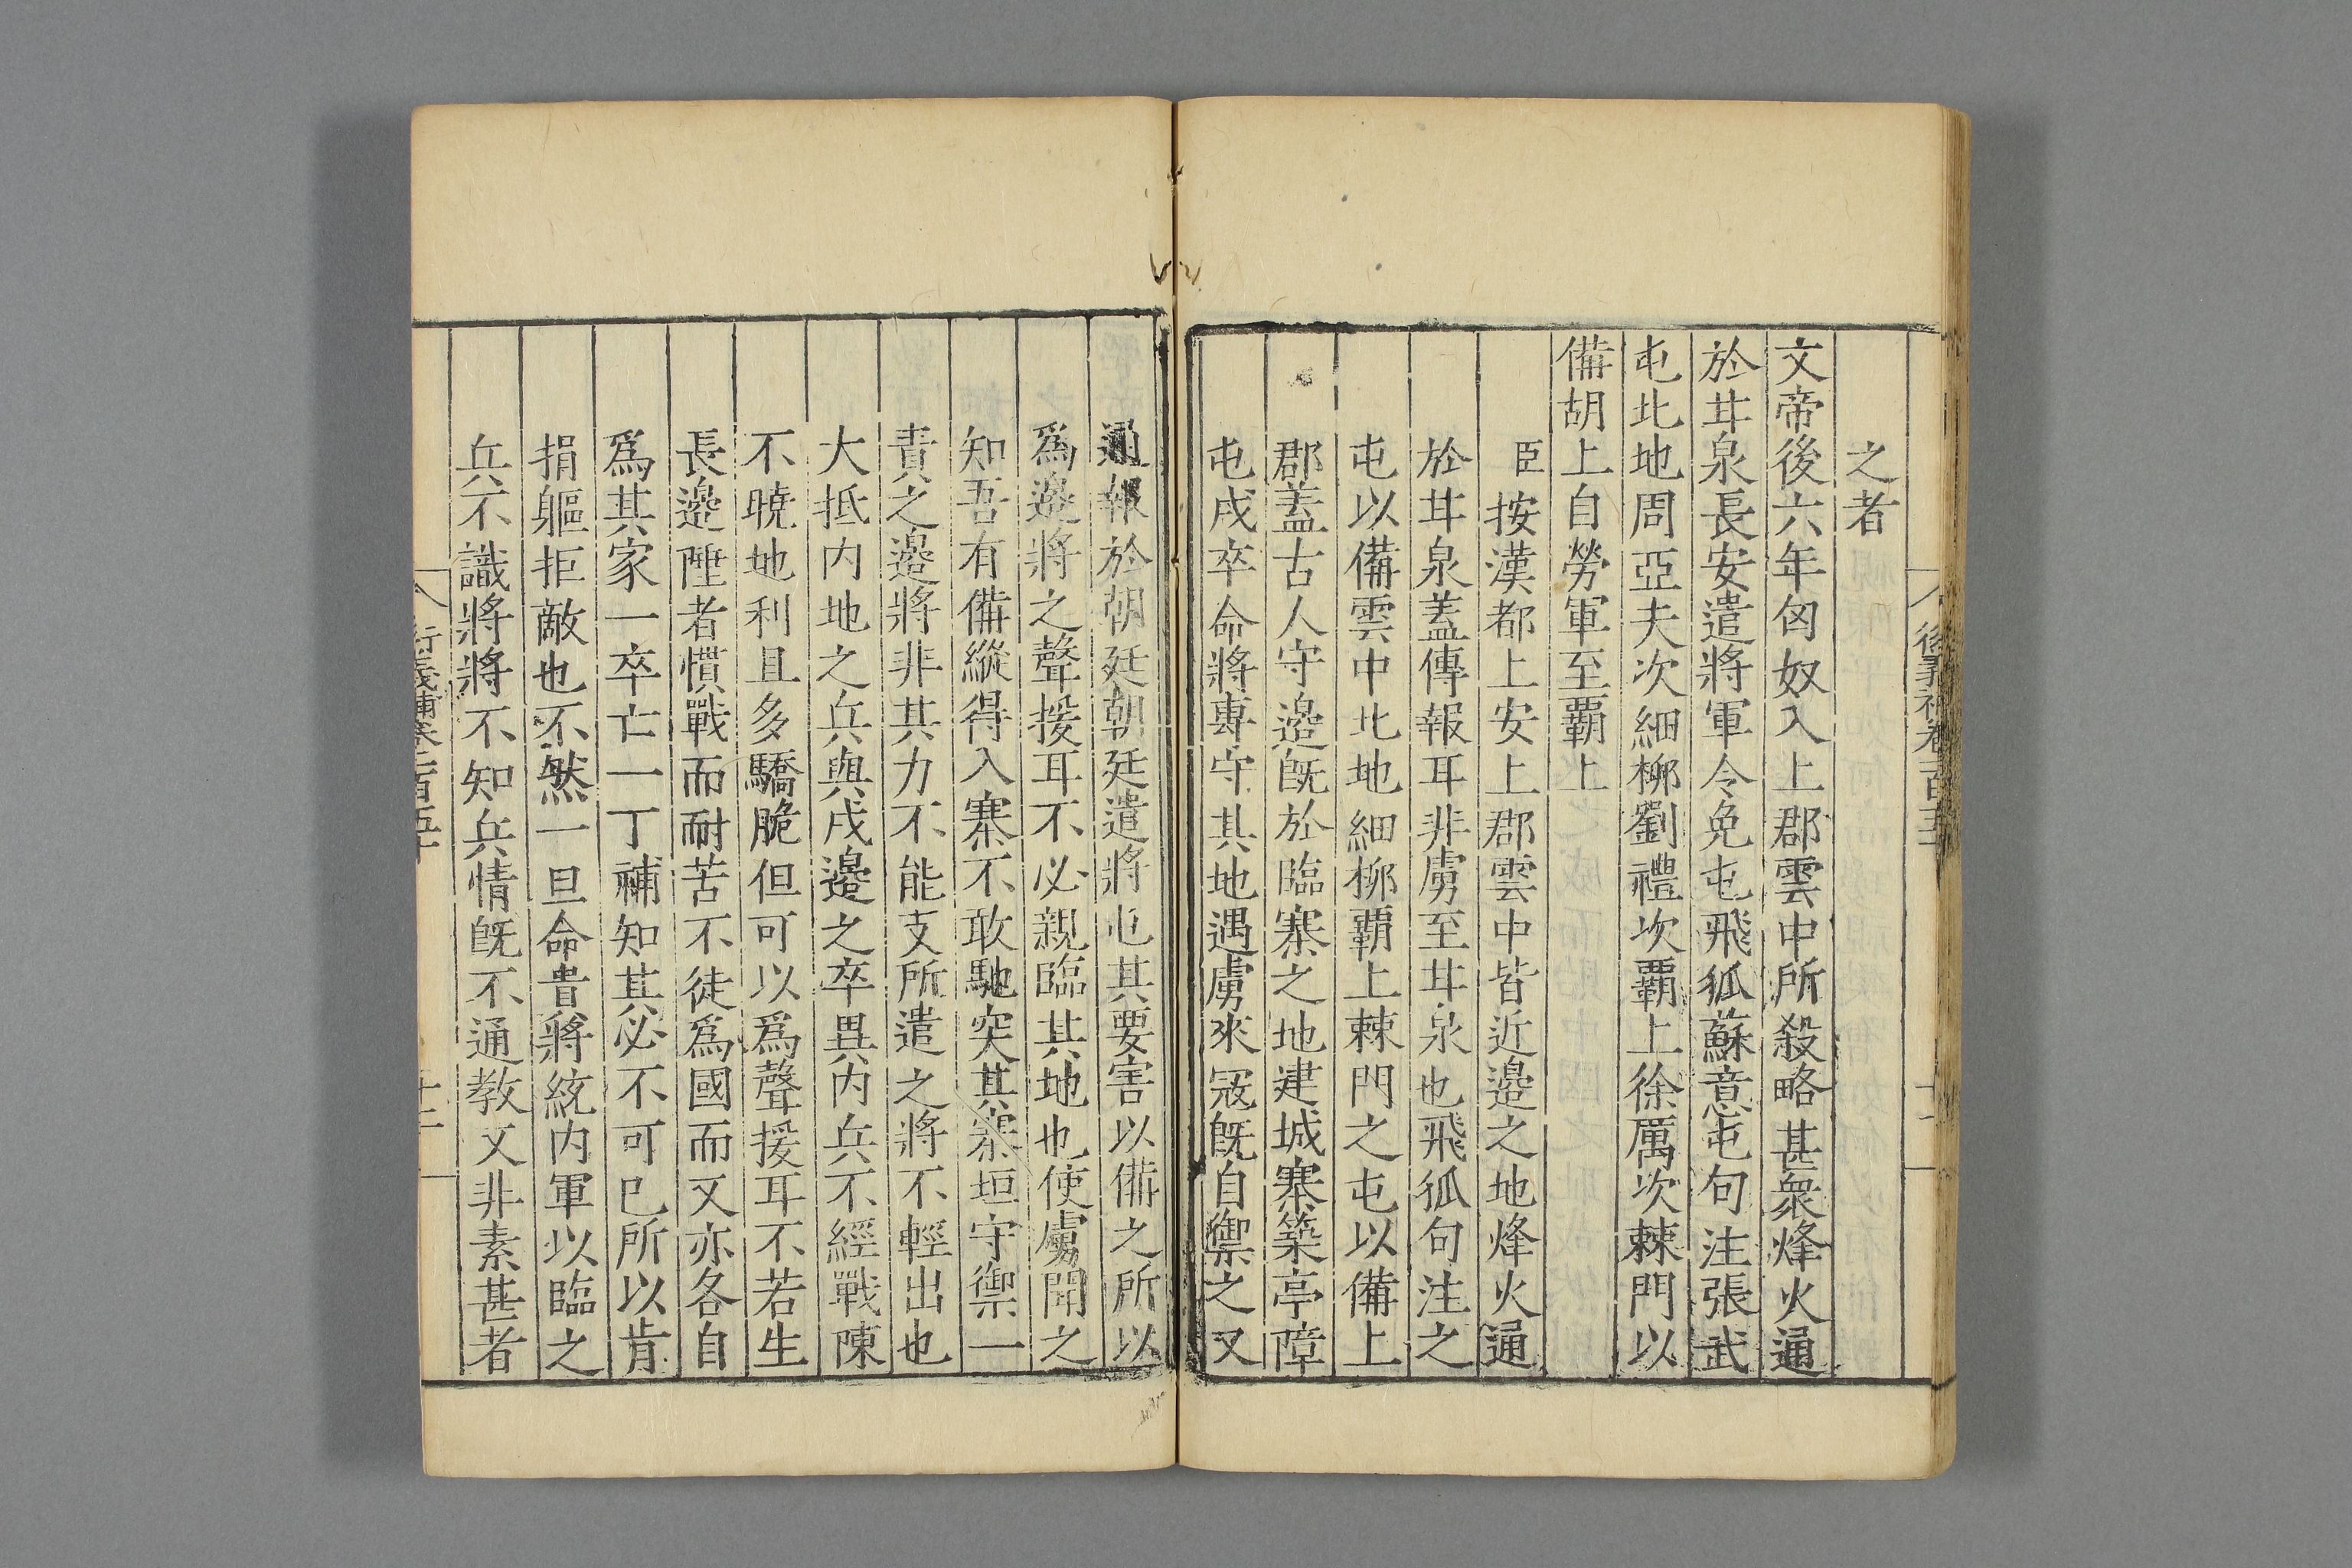 之者
文帝後六年匈奴入上郡雲中所殺略甚衆烽火通
於甘泉長安遣將軍令免屯飛狐蘇意屯句注張武
屯北地周亞夫次細柳劉禮次覇上徐厲次棘門以
備胡上自勞軍至覇上
臣按漢都上安上郡雲中皆近邉之地烽火通
於甘泉蓋傳報耳非虜至甘泉也飛狐句注之
屯以備雲中北地細柳覇上棘門之屯以備上
郡蓋古人守邉旣於臨寨之地建城寨築亭障
屯戍卒命將專守其地遇虜來寇旣自禦之又
通報於朝廷朝廷遣將屯其要害以備之所以
爲邉將之聲援耳不必親臨其地也使虜聞之
知吾有備縱得入寨不敢馳突其寨垣守禦一
責之邉將非其力不能支所遣之將不輕出也
大抵内地之兵與戍邉之卒異内兵不經戰陳
不曉地利且多驕脆但可以爲聲援耳不若生
長邉陲者慣戰而耐苦不徒爲國而又亦各自
爲其家一卒亡一丁補知其必不可已所以肯
捐軀拒敵也不然一旦命貴將統内軍以臨之
兵不識將將不知兵情旣不通教又非素甚者